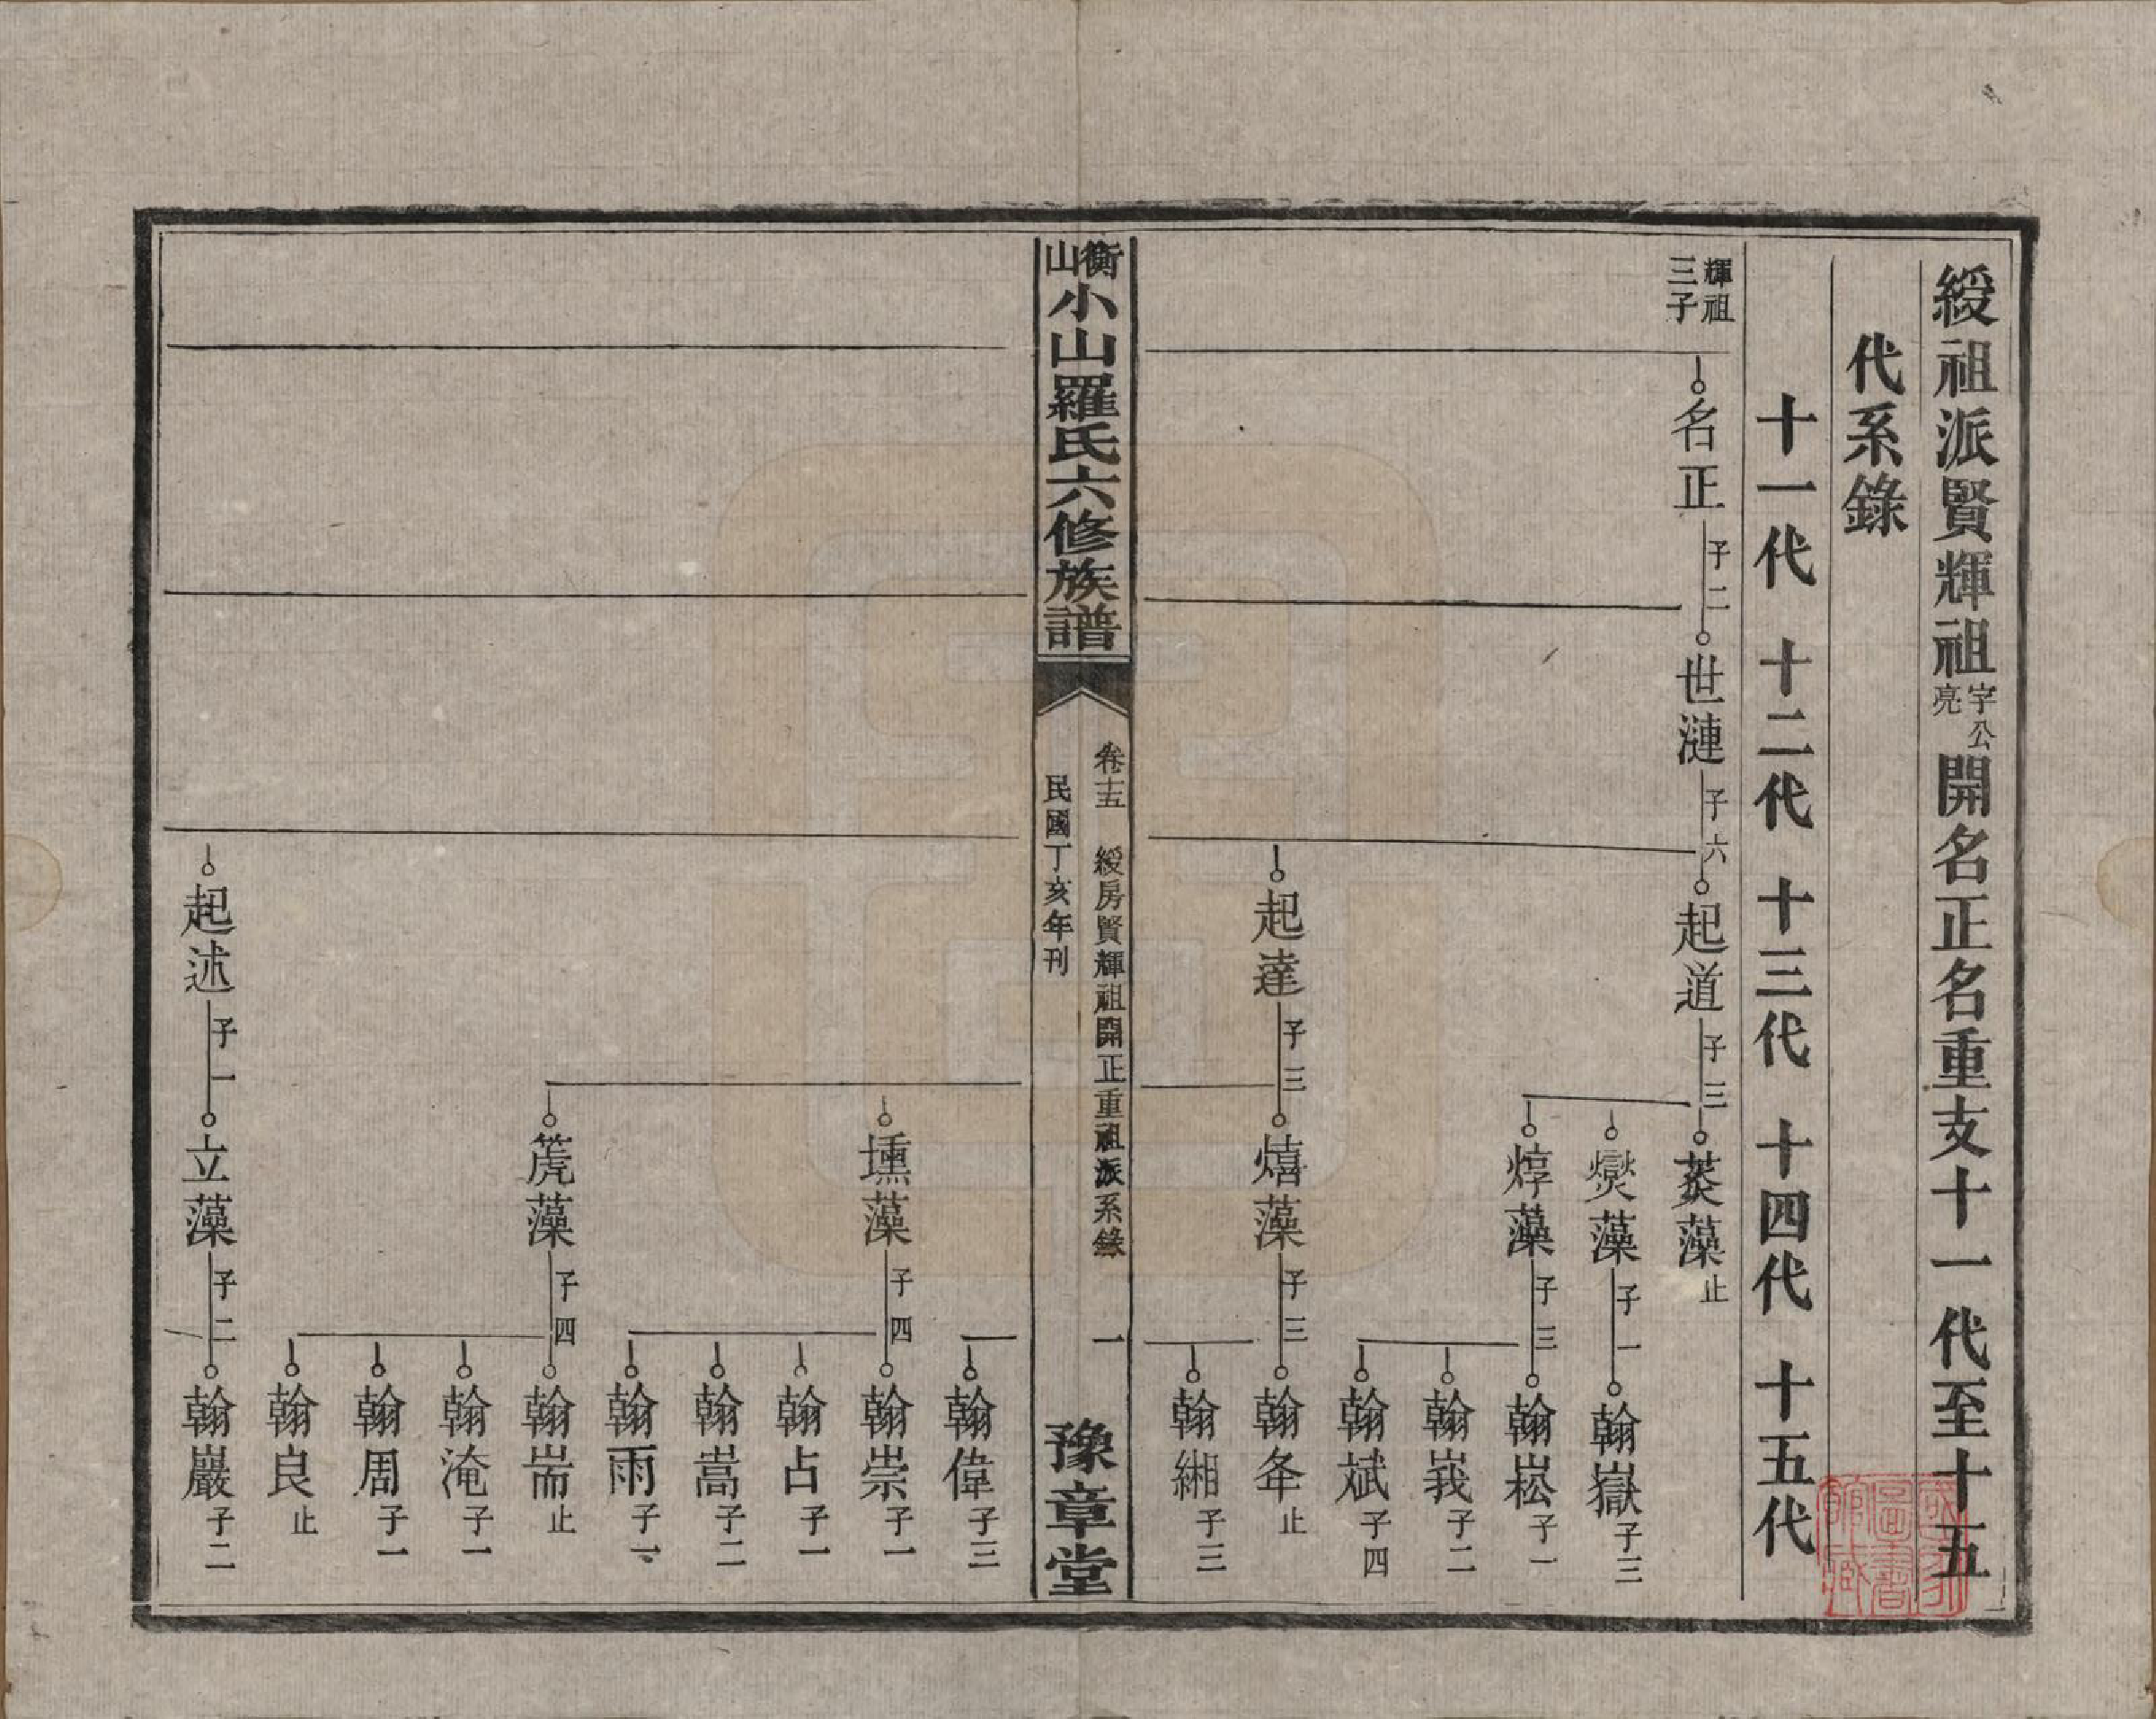 綬祖派賢輝祖字公亮開名正名重支十一代至十五
代系錄
十一代 十二代 十三代 十四代 十五代
輝祖三子
名正 子二 世漣 子六 起道 子三 炗藻 止
燓藻 子一 翰嶽 子三
焞藻 子三 翰崧 子一
翰峩 子二
翰斌 子四
起達 子三 熺藻 子三 翰夆 止
翰緗 子三
衡山小山羅氏六修族譜
卷十五 綬房賢輝祖開正重祖派系錄 一
民國丁亥年刊
豫章堂
翰偉 子三
壎藻 子四 翰崇 子一
翰占 子一
翰嵩 子二
翰雨 子一
篪藻 子四 翰耑 止
翰淹 子一
翰周 子一
翰良 止
起述 子一 立藻 子二 翰巖 子二
國家圖書館藏